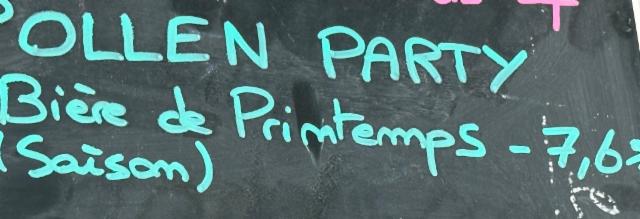 POLLEN PARTY
Bière de Printemps - 7,6%
(Saison)